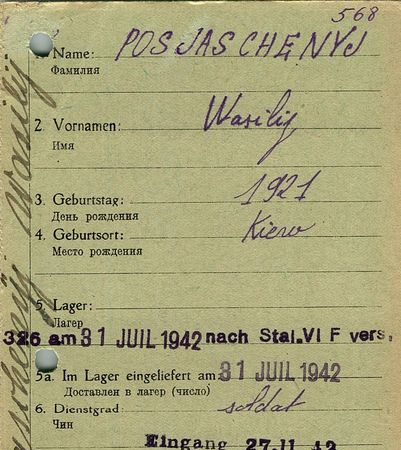 568
1. Name: POSJASCHENYJ
Фамилия
2. Vornamen: Wasilij
Имя
3. Geburtstag: 1921
День рождения
4. Geburtsort: Kiew
Место рождения
5. Lager:
Лагерь
326 am 31 JUIL 1942 nach Stal. VI F vers.
5a. Im Lager eingeliefert am: 31 JUIL 1942
Доставлен в лагерь (число)
6. Dienstgrad: soldat
Чин
Eingang 27.11.42
Wasilij